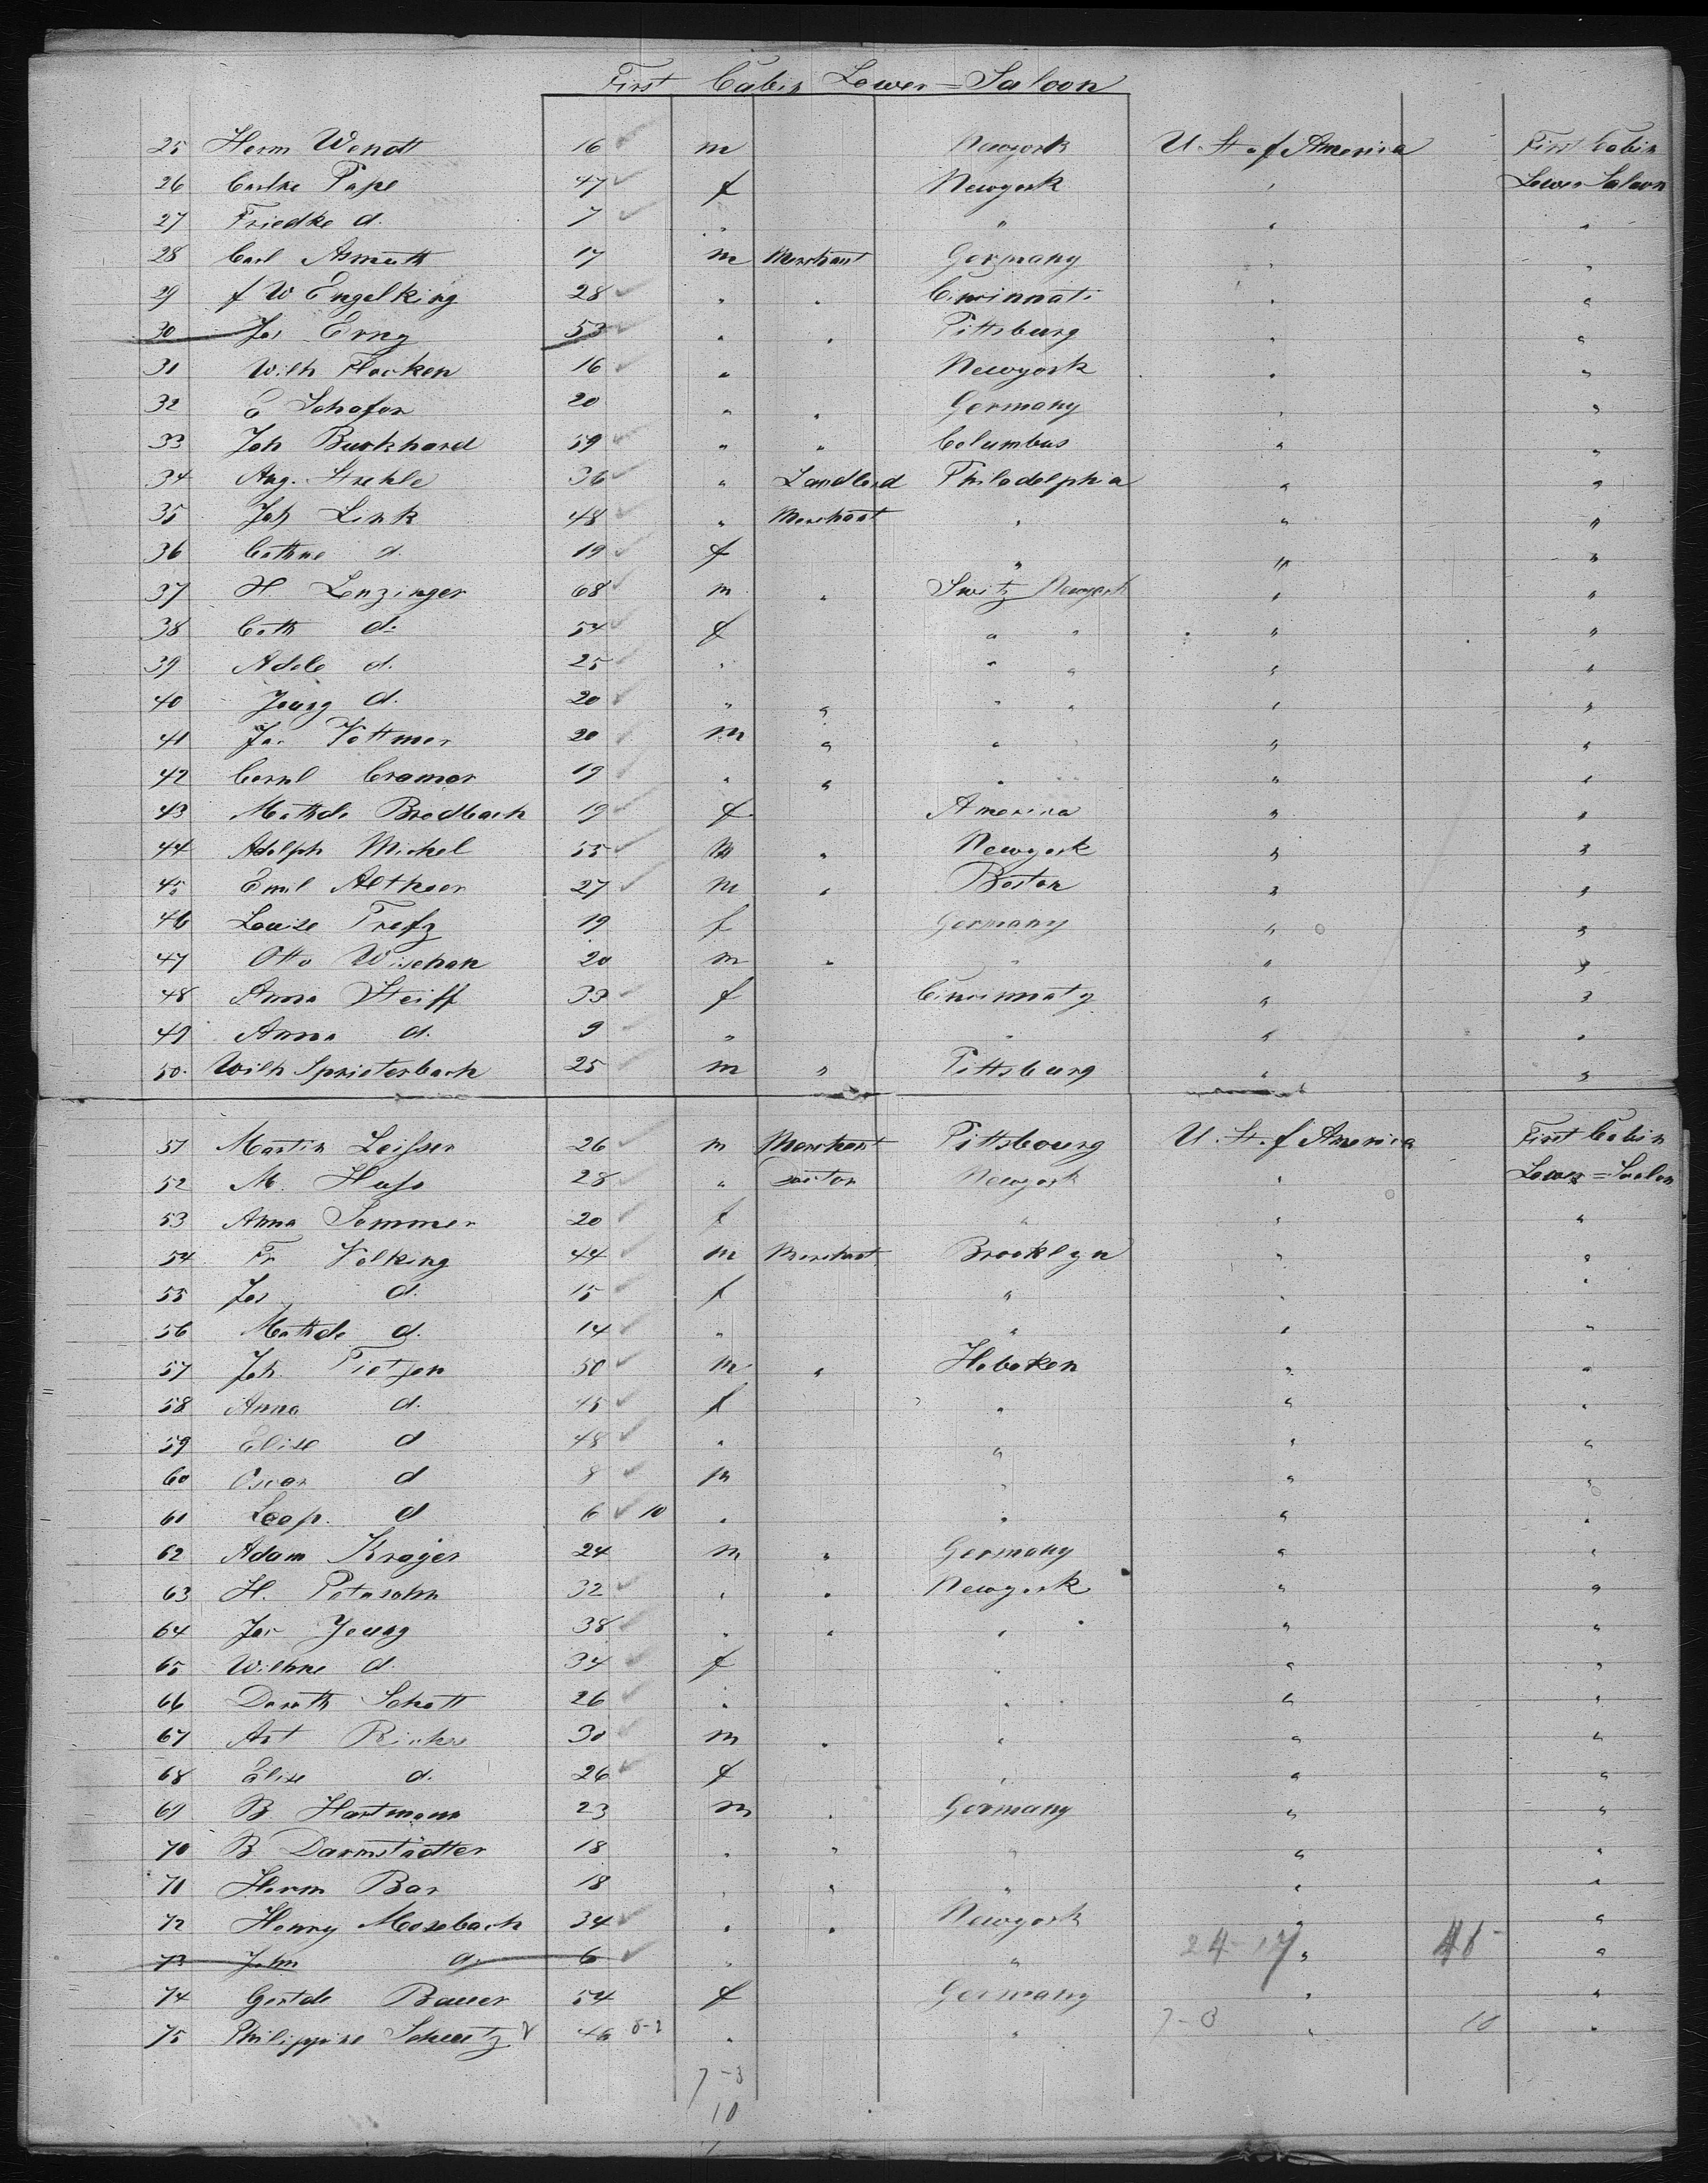 First Cabin Lower=Saloon
25 Herm Wendt 16 m Newyork U. St. of America First Cabin
26 Carlne Pape 47 f Newyork " Lower Saloon
27 Friedke d. 7 " " " "
28 Carl Asmuth 17 m Merchant Germany " "
29 f W Engelking 28 " " Cincinnati " "
30 Jos Erny 53 " " Pittsburg " "
31 Wilh Flocken 16 " Newyork " "
32 E Schafer 20 " " Germany " "
33 Joh Burkhard 59 " " Columbus " "
34 Aug. Stuhle 36 " Landlord Philadelphia " "
35 Joh Link 48 " Merchant " " "
36 Cathne d. 19 f " " "
37 H Lenzinger 68 m " Switz Newyork " "
38 Cath d: 54 f " " " "
39 Adele d. 25 " " " " "
40 Joung d. 20 " " " " " "
41 Jac Vottmer 20 m " " " "
42 Cornl Cramer 19 " " " " "
43 Mathde Brodbach 19 f America " "
44 Adolph Michel 55 m " Newyork " "
45 Emil Altheer 27 m " Boston " "
46 Louise Trefz 19 f Germany " "
47 Otto Wischan 20 m " " " "
48 Anna Steiff 33 f Cincinnaty " "
49 Anna d. 9 " " " "
50. Wilh Sprieterbach 25 m " Pittsburg " "
51 Martin Leisser 26 m Merchant Pittsbourg U. St. of America First Cabin
52 M. Hass 28 " Newyork " Lower=Saolon
53 Anna Sommer 20 f " " "
54 Fr Volking 44 m Merchant Brooklyn " "
55 Jos d. 15 f " " "
56 Mathde d. 14 " " " "
57 Joh. Tietjen 50 m " Hoboken " "
58 Anna d. 45 f " " "
59 Elise d 48 " " " "
60 Oscar d 8 m " " "
61 Leop. d 6 10 " " " "
62 Adam Krager 24 m " Germany " "
63 H. Petasohn 32 " " Newyork " "
64 Jac Joung 38 " " " " "
65 Wilhne d. 34 f " " "
66 Doroth Schott 26 " " " "
67 Ast Rickse 30 m " " " "
68 Elise d. 26 f " " "
69 B Hartmann 23 m " Germany " "
70 B Darmstädter 18 " " " " "
71 Herm Bar 18 " " " " "
72 Henry Mosebach 34 " " Newyork " "
73 John d. 6 " " 24-17 " 46- "
74 Gertde Bauer 54 f Germany " "
75 Philippine Schuetz 8-2 " " 7-3 " 10 "
7-3
10